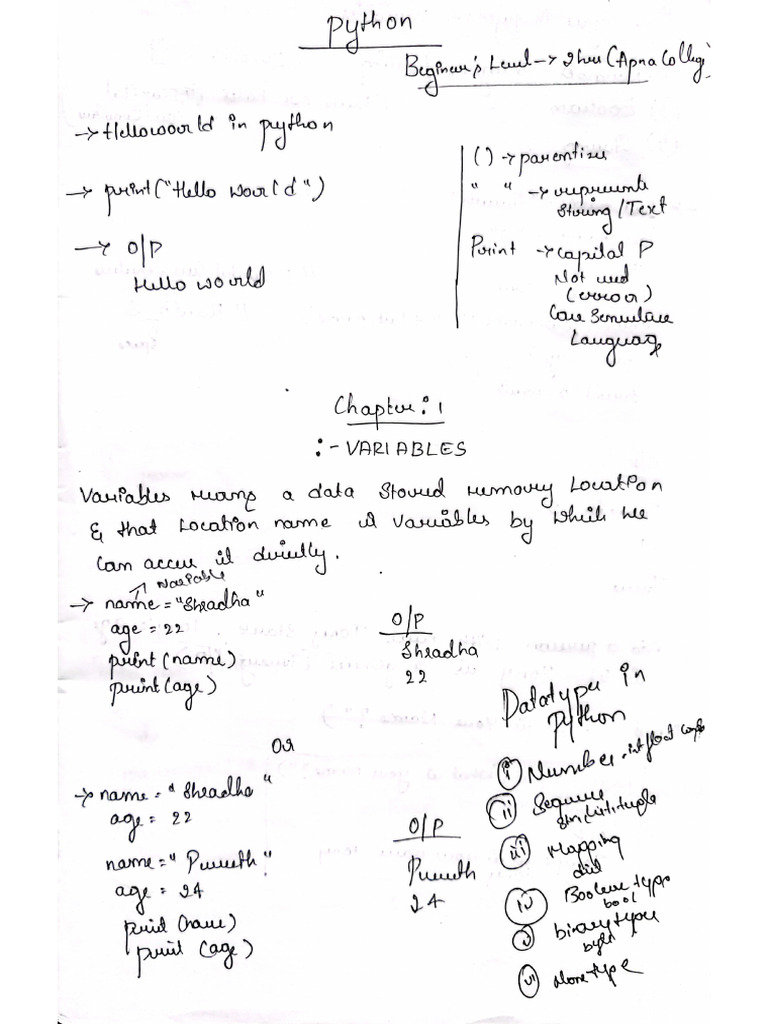 Python
Beginner's Level → 2hrs (Apna College)
→ Helloworld in python
→ print("Hello world")
→ O/P
Hello world
( ) → parentises
" " → represents
String/Text
Print → capital P
Not used
(error)
Case Sensitive
Language
Chapter: 1
:- VARIABLES
Variables means a data stored memory Location
& that Location name is Variables by which we
can access it directly.
Variable
→ name = "Shradha"
age = 22
print(name)
print(age)
O/P
Shradha
22
Or
→ name = "Shradha"
age = 22
name = "
age = 24
print (name)
print (age)
O/P
24
Datatypes in
Python
i Number - int float
ii Sequence
list, tuple
iii Mapping
dict
iv Boolean type
bool
v binary types
vi None type